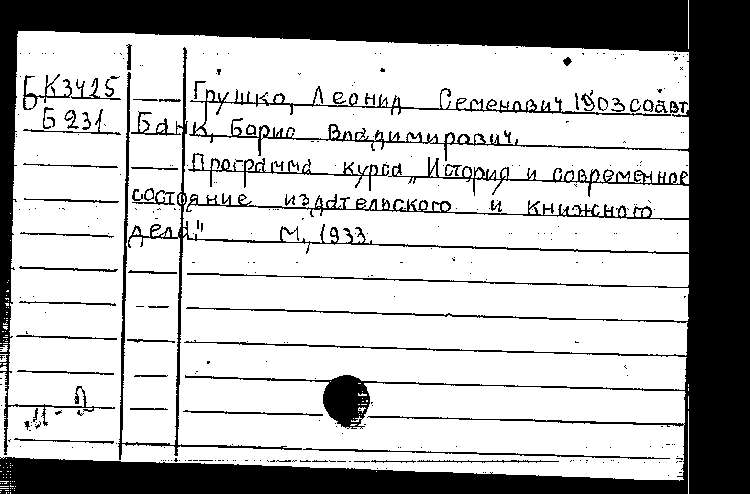 БК3425 Грушко, Леонид Семенович 1903 соавт.
Б231 Банк, Борис Владимирович.
Программа курса „История и современное
состояние издательского и книжного
дела." М., 1933.